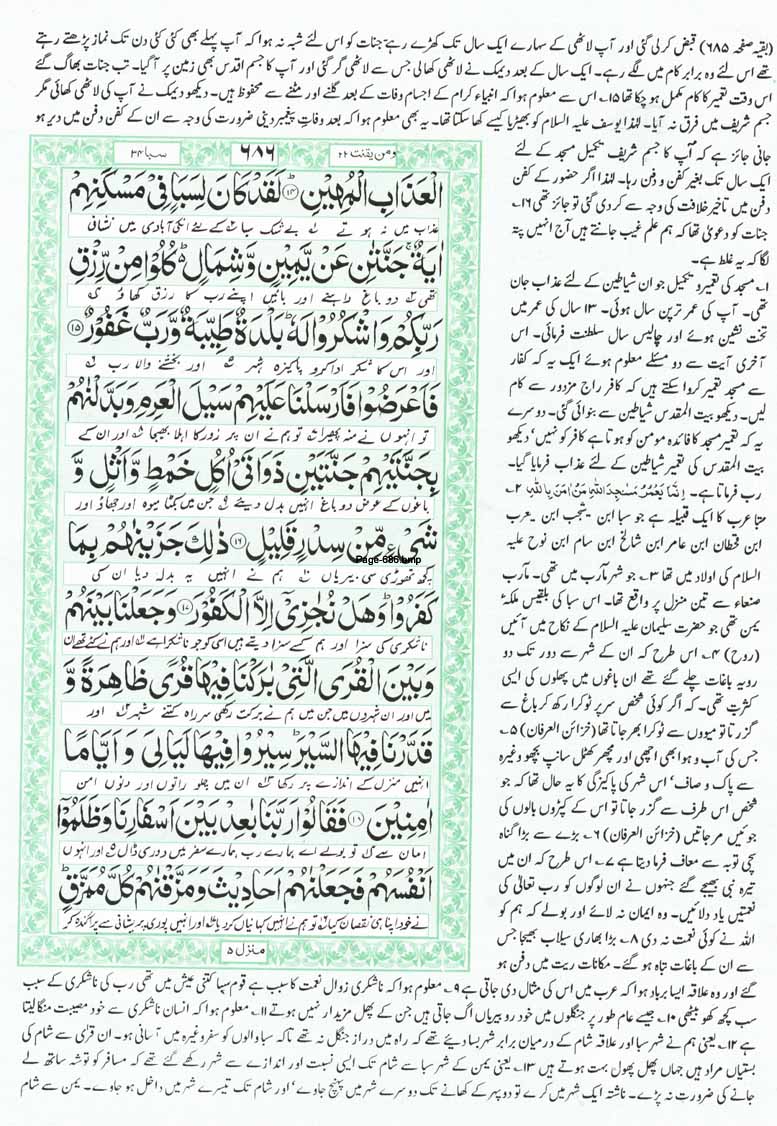 (بقیہ صفحہ ۶۸۵) قبض کر لی گئی اور آپ لاٹھی کے سہارے ایک سال تک کھڑے رہے جنات کو اس لئے شبہ نہ ہوا کہ آپ پہلے بھی کئی کئی دن تک نماز پڑھتے رہتے
تھے اس لئے وہ برابر کام میں لگے رہے۔ ایک سال کے بعد دیمک نے لاٹھی کھالی جس سے لاٹھی گر گئی اور آپ کا جسم اقدس بھی زمین پر آ گیا۔ تب جنات بھاگ گئے
اس وقت تعمیر کا کام مکمل ہو چکا تھا ۱۵۔ اس سے معلوم ہوا کہ انبیاء کرام کے اجسام وفات کے بعد گلنے اور مٹنے سے محفوظ ہیں۔ دیکھو دیمک نے آپ کی لاٹھی کھائی مگر
جسم شریف میں فرق نہ آیا۔ لہٰذا یوسف علیہ السلام کو بھیڑیا کیسے کھا سکتا تھا۔ یہ بھی معلوم ہوا کہ بعد وفات پیغمبر دینی ضرورت کی وجہ سے ان کے کفن دفن میں دیر ہو
جانی جائز ہے کہ آپ کا جسم شریف تکمیل مسجد کے لئے
ایک سال تک بغیر کفن و دفن رہا۔ لہٰذا اگر حضور کے کفن
دفن میں تاخیر خلافت کی وجہ سے کر دی گئی تو جائز تھی ۱۶۔
جنات کو دعویٰ تھا کہ ہم علم غیب جانتے ہیں آج انہیں پتہ
لگا کہ یہ غلط ہے۔
۱۔ مسجد کی تعمیر و تکمیل جو ان شیاطین کے لئے عذاب جان
تھی۔ آپ کی عمر ترپن سال ہوئی۔ ۱۳ سال کی عمر میں
تخت نشین ہوئے اور چالیس سال سلطنت فرمائی۔ اس
آخری آیت سے دو مسئلے معلوم ہوئے ایک یہ کہ کفار
سے مسجد تعمیر کروا سکتے ہیں کہ کافر راج مزدور سے کام
لیں۔ دیکھو بیت المقدس شیاطین سے بنوائی گئی۔ دوسرے
یہ کہ تعمیر مسجد کا فائدہ مومن کو ہوتا ہے کافر کو نہیں‘ دیکھو
بیت المقدس کی تعمیر شیاطین کے لئے عذاب فرمایا گیا۔
رب فرماتا ہے۔ اِنَّمَا يَعْمُرُ مَسٰجِدَ اللهِ مَنْ اٰمَنَ بِاللهِ ۲۔
سبا عرب کا ایک قبیلہ ہے جو سبا ابن یشجب ابن یعرب
ابن قحطان ابن عامر ابن شالخ ابن سام ابن نوح علیہ
السلام کی اولاد میں تھا ۳۔ جو شہر مآرب میں تھی۔ مآرب
صنعاء سے تین منزل پر واقع تھا۔ اس سبا کی بلقیس ملکۂ
یمن تھی جو حضرت سلیمان علیہ السلام کے نکاح میں آئیں
(روح) ۴۔ اس طرح کہ ان کے شہر سے دور تک دو
رویہ باغات چلے گئے تھے ان باغوں میں پھلوں کی ایسی
کثرت تھی۔ کہ اگر کوئی شخص سر پر ٹوکرا رکھ کر باغ سے
گزرتا تو میووں سے ٹوکرا بھر جاتا تھا (خزائن العرفان) ۵۔
جس کی آب و ہوا بھی اچھی اور مچھر کھٹمل سانپ بچھو وغیرہ
سے پاک و صاف‘ اس شہر کی پاکیزگی کا یہ حال تھا کہ جو
شخص اس طرف سے گزر جاتا تو اس کے کپڑوں بالوں کی
جوئیں مر جاتیں (خزائن العرفان) ۶۔ بڑے سے بڑا گناہ
سچی توبہ سے معاف فرما دیتا ہے ۷۔ اس طرح کہ ان میں
تیرہ نبی بھیجے گئے جنہوں نے ان لوگوں کو رب تعالٰی کی
نعمتیں یاد دلائیں۔ وہ ایمان نہ لائے اور بولے کہ ہم کو
اللہ نے کوئی نعمت نہ دی ۸۔ بڑا بھاری سیلاب بھیجا جس
سے ان کے باغات تباہ ہو گئے۔ مکانات ریت میں دفن ہو
ومن یقنت ۲۲ ۶۸۶ سبا ۳۴
الْعَذَابِ الْمُهِيْنِ ۝۱۴ لَقَدْ كَانَ لِسَبَاٍ فِيْ مَسْكَنِهِمْ
عذاب میں نہ ہوتے بے شک سبا کے لئے انکی آبادی میں نشانی
اٰيَةٌ ۚ جَنَّتٰنِ عَنْ يَّمِيْنٍ وَّشِمَالٍ ؕ كُلُوْا مِنْ رِّزْقِ
تھی دو باغ داہنے اور بائیں اپنے رب کا رزق کھاؤ
رَبِّكُمْ وَاشْكُرُوْا لَهٗ ؕ بَلْدَةٌ طَيِّبَةٌ وَّرَبٌّ غَفُوْرٌ ۝۱۵
اور اس کا شکر ادا کرو پاکیزہ شہر اور بخشنے والا رب
فَاَعْرَضُوْا فَاَرْسَلْنَا عَلَيْهِمْ سَيْلَ الْعَرِمِ وَبَدَّلْنٰهُمْ
تو انہوں نے منہ پھیرا تو ہم نے ان پر زور کا اہلا بھیجا اور ان کے
بِجَنَّتَيْهِمْ جَنَّتَيْنِ ذَوَاتَيْ اُكُلٍ خَمْطٍ وَّاَثْلٍ وَّ
باغوں کے عوض دو باغ انہیں بدل دیئے جن میں بکٹا میوہ اور جھاؤ اور
شَيْءٍ مِّنْ سِدْرٍ قَلِيْلٍ ۝۱۶ ذٰلِكَ جَزَيْنٰهُمْ بِمَا
Page-686.bmp
کچھ تھوڑی سی بیریاں ہم نے انہیں یہ بدلہ دیا ان کی
كَفَرُوْا ؕ وَهَلْ نُجٰزِيْٓ اِلَّا الْكَفُوْرَ ۝۱۷ وَجَعَلْنَا بَيْنَهُمْ
ناشکری کی سزا اور ہم کسے سزا دیتے ہیں اسی کو جو ناشکرا ہے اور ہم نے کئے تھے ان
وَبَيْنَ الْقُرَى الَّتِيْ بٰرَكْنَا فِيْهَا قُرًى ظَاهِرَةً وَّ
میں اور ان شہروں میں جن میں ہم نے برکت رکھی سر راہ کتنے شہر اور
قَدَّرْنَا فِيْهَا السَّيْرَ ؕ سِيْرُوْا فِيْهَا لَيَالِيَ وَاَيَّامًا
انہیں منزل کے اندازے پر رکھا ان میں چلو راتوں اور دنوں امن
اٰمِنِيْنَ ۝۱۸ فَقَالُوْا رَبَّنَا بٰعِدْ بَيْنَ اَسْفَارِنَا وَظَلَمُوْٓا
امان سے تو بولے اے ہمارے رب ہمارے سفر میں دوری ڈال اور انہوں
اَنْفُسَهُمْ فَجَعَلْنٰهُمْ اَحَادِيْثَ وَمَزَّقْنٰهُمْ كُلَّ مُمَزَّقٍ ؕ
نے خود اپنا ہی نقصان کیا تو ہم نے انہیں کہانیاں کر دیا اور انہیں پوری پریشانی سے پراگندہ کر
منزل ۵
گئے اور وہ علاقہ ایسا برباد ہوا کہ عرب میں اس کی مثال دی جاتی ہے ۹۔ معلوم ہوا کہ ناشکری زوال نعمت کا سبب ہے قوم سبا کتنی عیش میں تھی رب کی ناشکری کے سبب
سب کچھ کھو بیٹھی ۱۰۔ جیسے عام طور پر جنگلوں میں خود رو بیریاں اگ جاتی ہیں جن کے پھل مزیدار نہیں ہوتے ۱۱۔ معلوم ہوا کہ انسان ناشکری سے خود مصیبت منگا لیتا
ہے ۱۲۔ یعنی ہم نے شہر سبا اور علاقہ شام کے درمیان برابر شہر بسا دیئے تھے کہ راہ میں دراز جنگل نہ تھے تاکہ سبا والوں کو سفر وغیرہ میں آسانی ہو۔ ان قرٰی سے شام کی
بستیاں مراد ہیں جہاں پھل پھول بہت ہوتے ہیں ۱۳۔ یعنی یمن کے شہر سبا سے شام تک ایسی نسبت اور اندازے سے شہر رکھے گئے تھے کہ مسافر کو توشہ ساتھ لے
جانے کی ضرورت نہ پڑے۔ ناشتہ ایک شہر میں کرے تو دوپہر کے کھانے تک دوسرے شہر میں پہنچ جاوے‘ اور شام تک تیسرے شہر میں داخل ہو جاوے۔ یمن سے شام